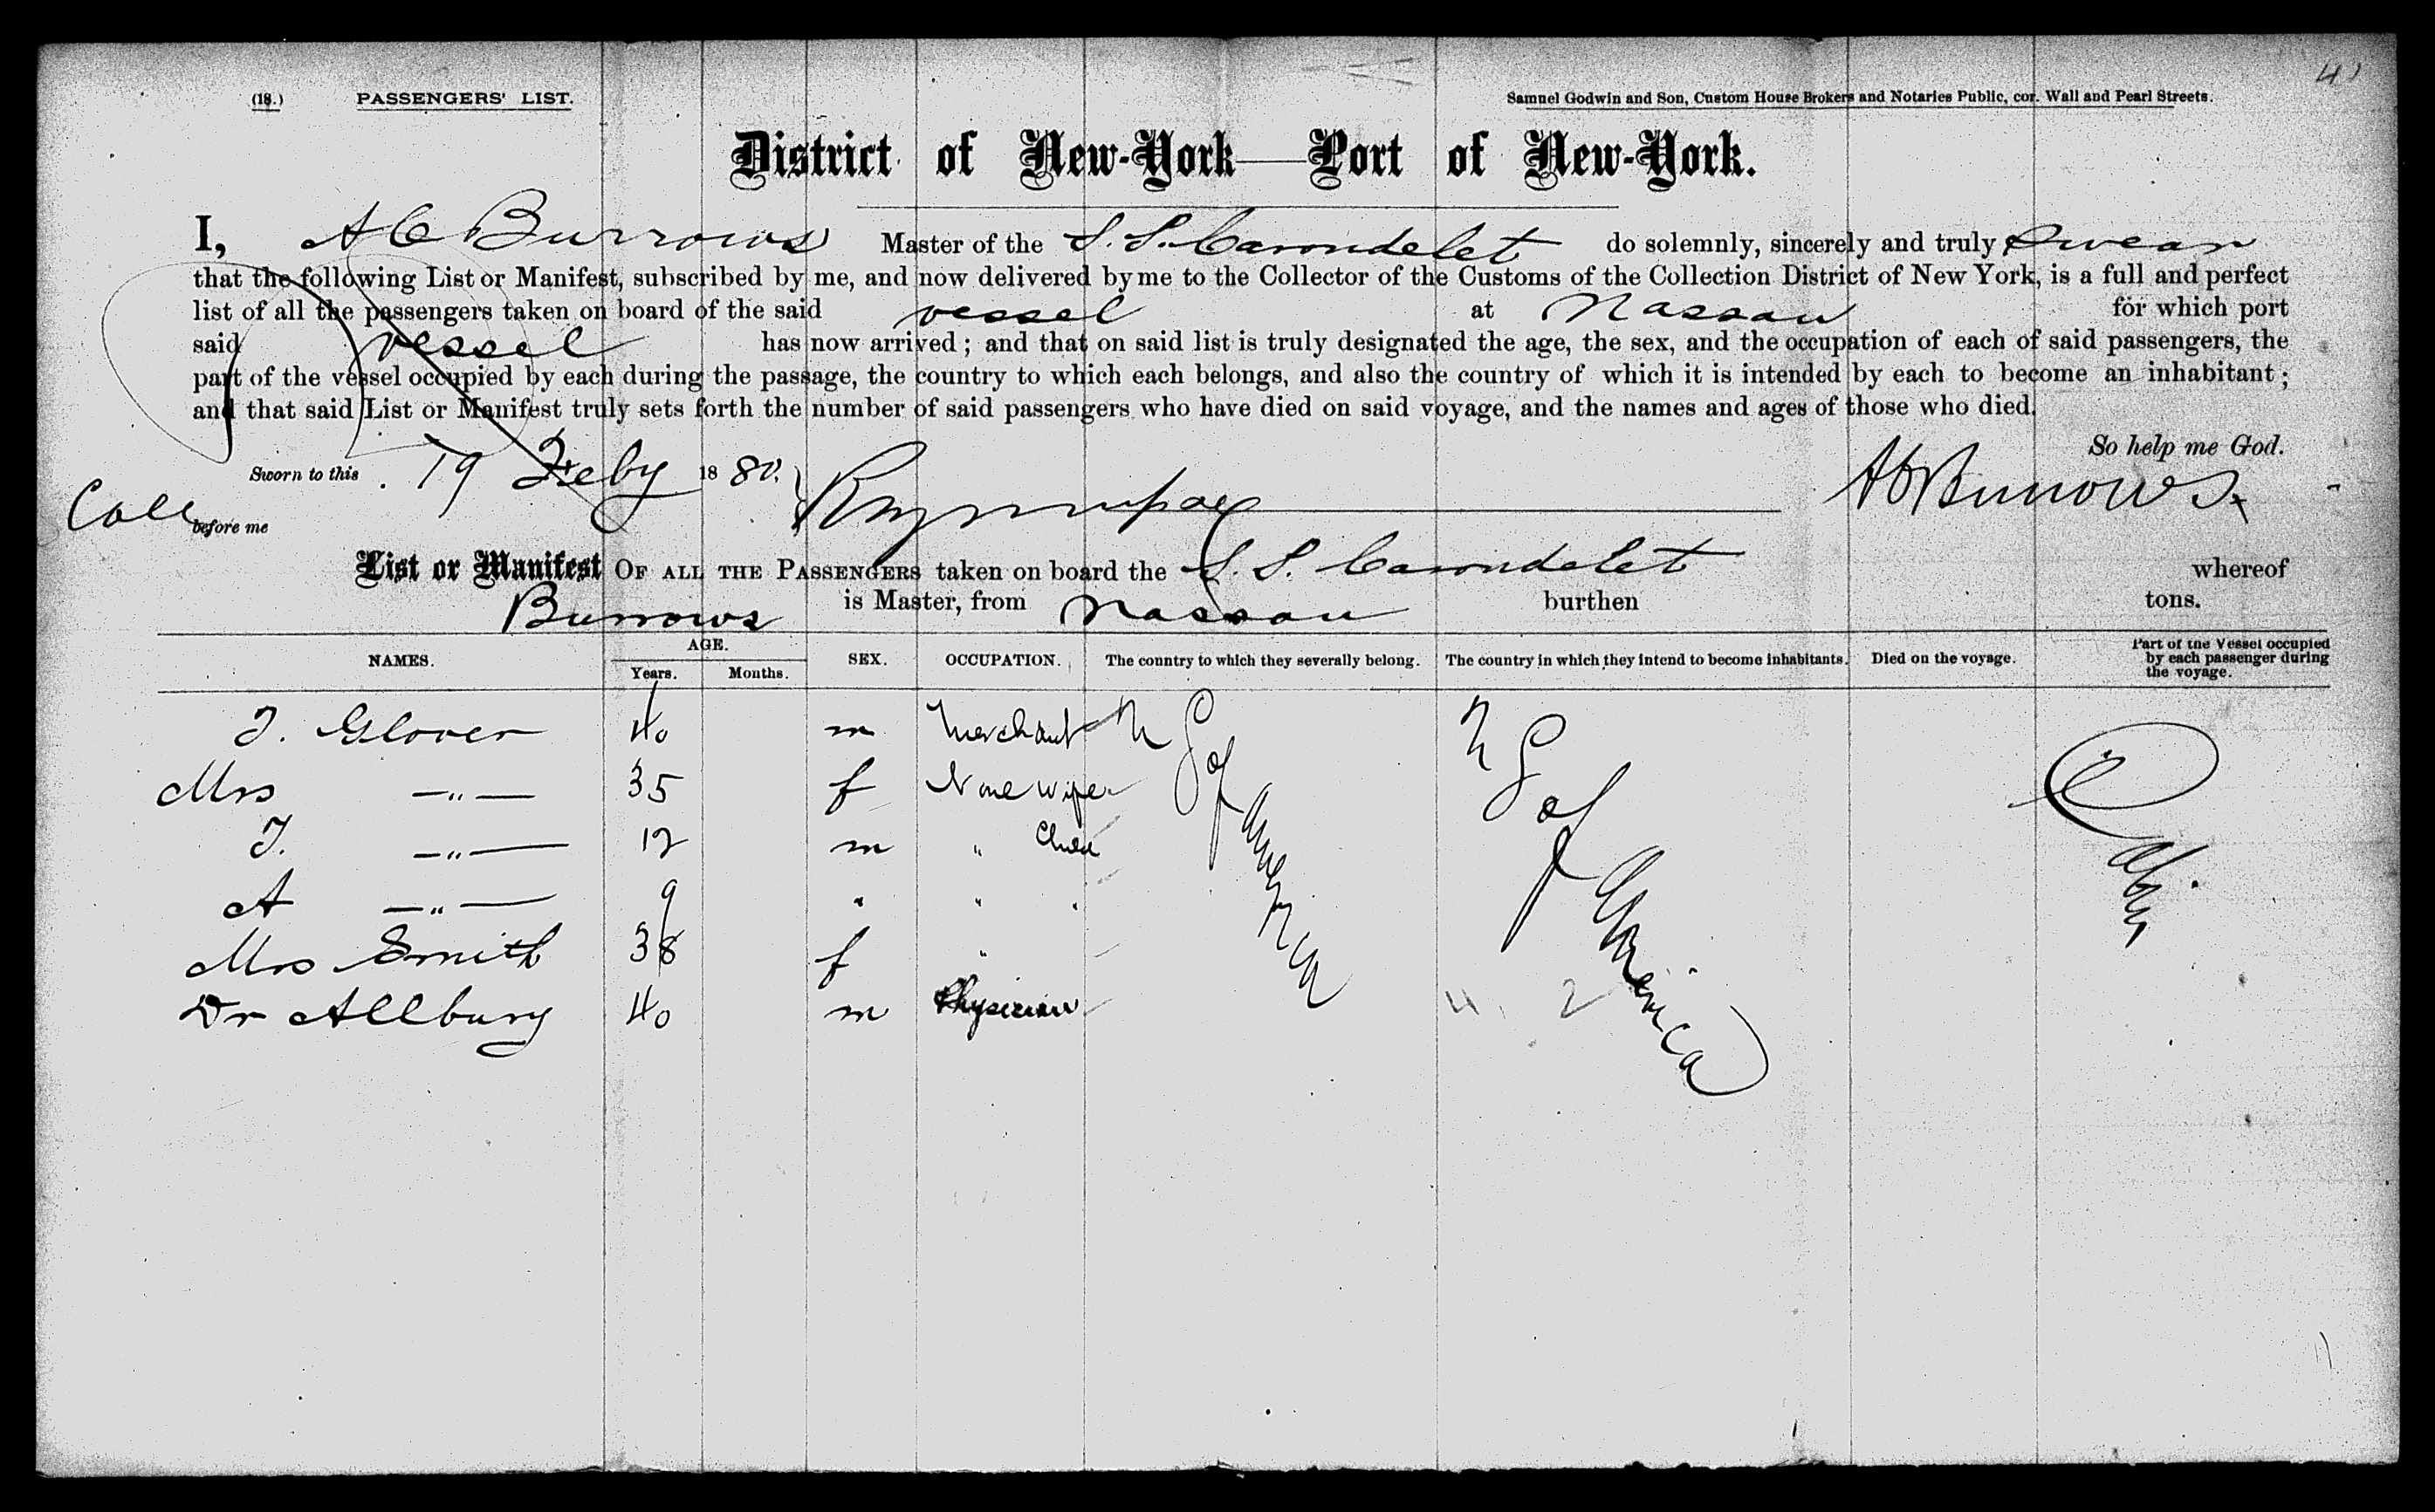 41
(18.) PASSENGERS' LIST. Samuel Godwin and Son, Custom House Brokers and Notaries Public, cor. Wall and Pearl Streets.
District of New-York—Port of New-York.
I, A C Burrows Master of the S. S. Carondelet do solemnly, sincerely and truly swear
that the following List or Manifest, subscribed by me, and now delivered by me to the Collector of the Customs of the Collection District of New York, is a full and perfect
list of all the passengers taken on board of the said vessel at Nassau for which port
said vessel has now arrived; and that on said list is truly designated the age, the sex, and the occupation of each of said passengers, the
part of the vessel occupied by each during the passage, the country to which each belongs, and also the country of which it is intended by each to become an inhabitant;
and that said List or Manifest truly sets forth the number of said passengers who have died on said voyage, and the names and ages of those who died.
So help me God.
Sworn to this 19 Feby 1880. A C Burrows
Coll before me
List or Manifest OF ALL THE PASSENGERS taken on board the S. S. Carondelet whereof
Burrows is Master, from Nassau burthen tons.
NAMES. AGE. Years. Months. SEX. OCCUPATION. The country to which they severally belong. The country in which they intend to become inhabitants. Died on the voyage. Part of the Vessel occupied by each passenger during the voyage.
J. Glover 40 m Merchant U S of America U S of America Cabin
Mrs —"— 35 f None wife
J. —"— 12 m " Child
A —"— 9 " " "
Mrs Smith 38 f "
Dr Allbury 40 m Physician
4. 2